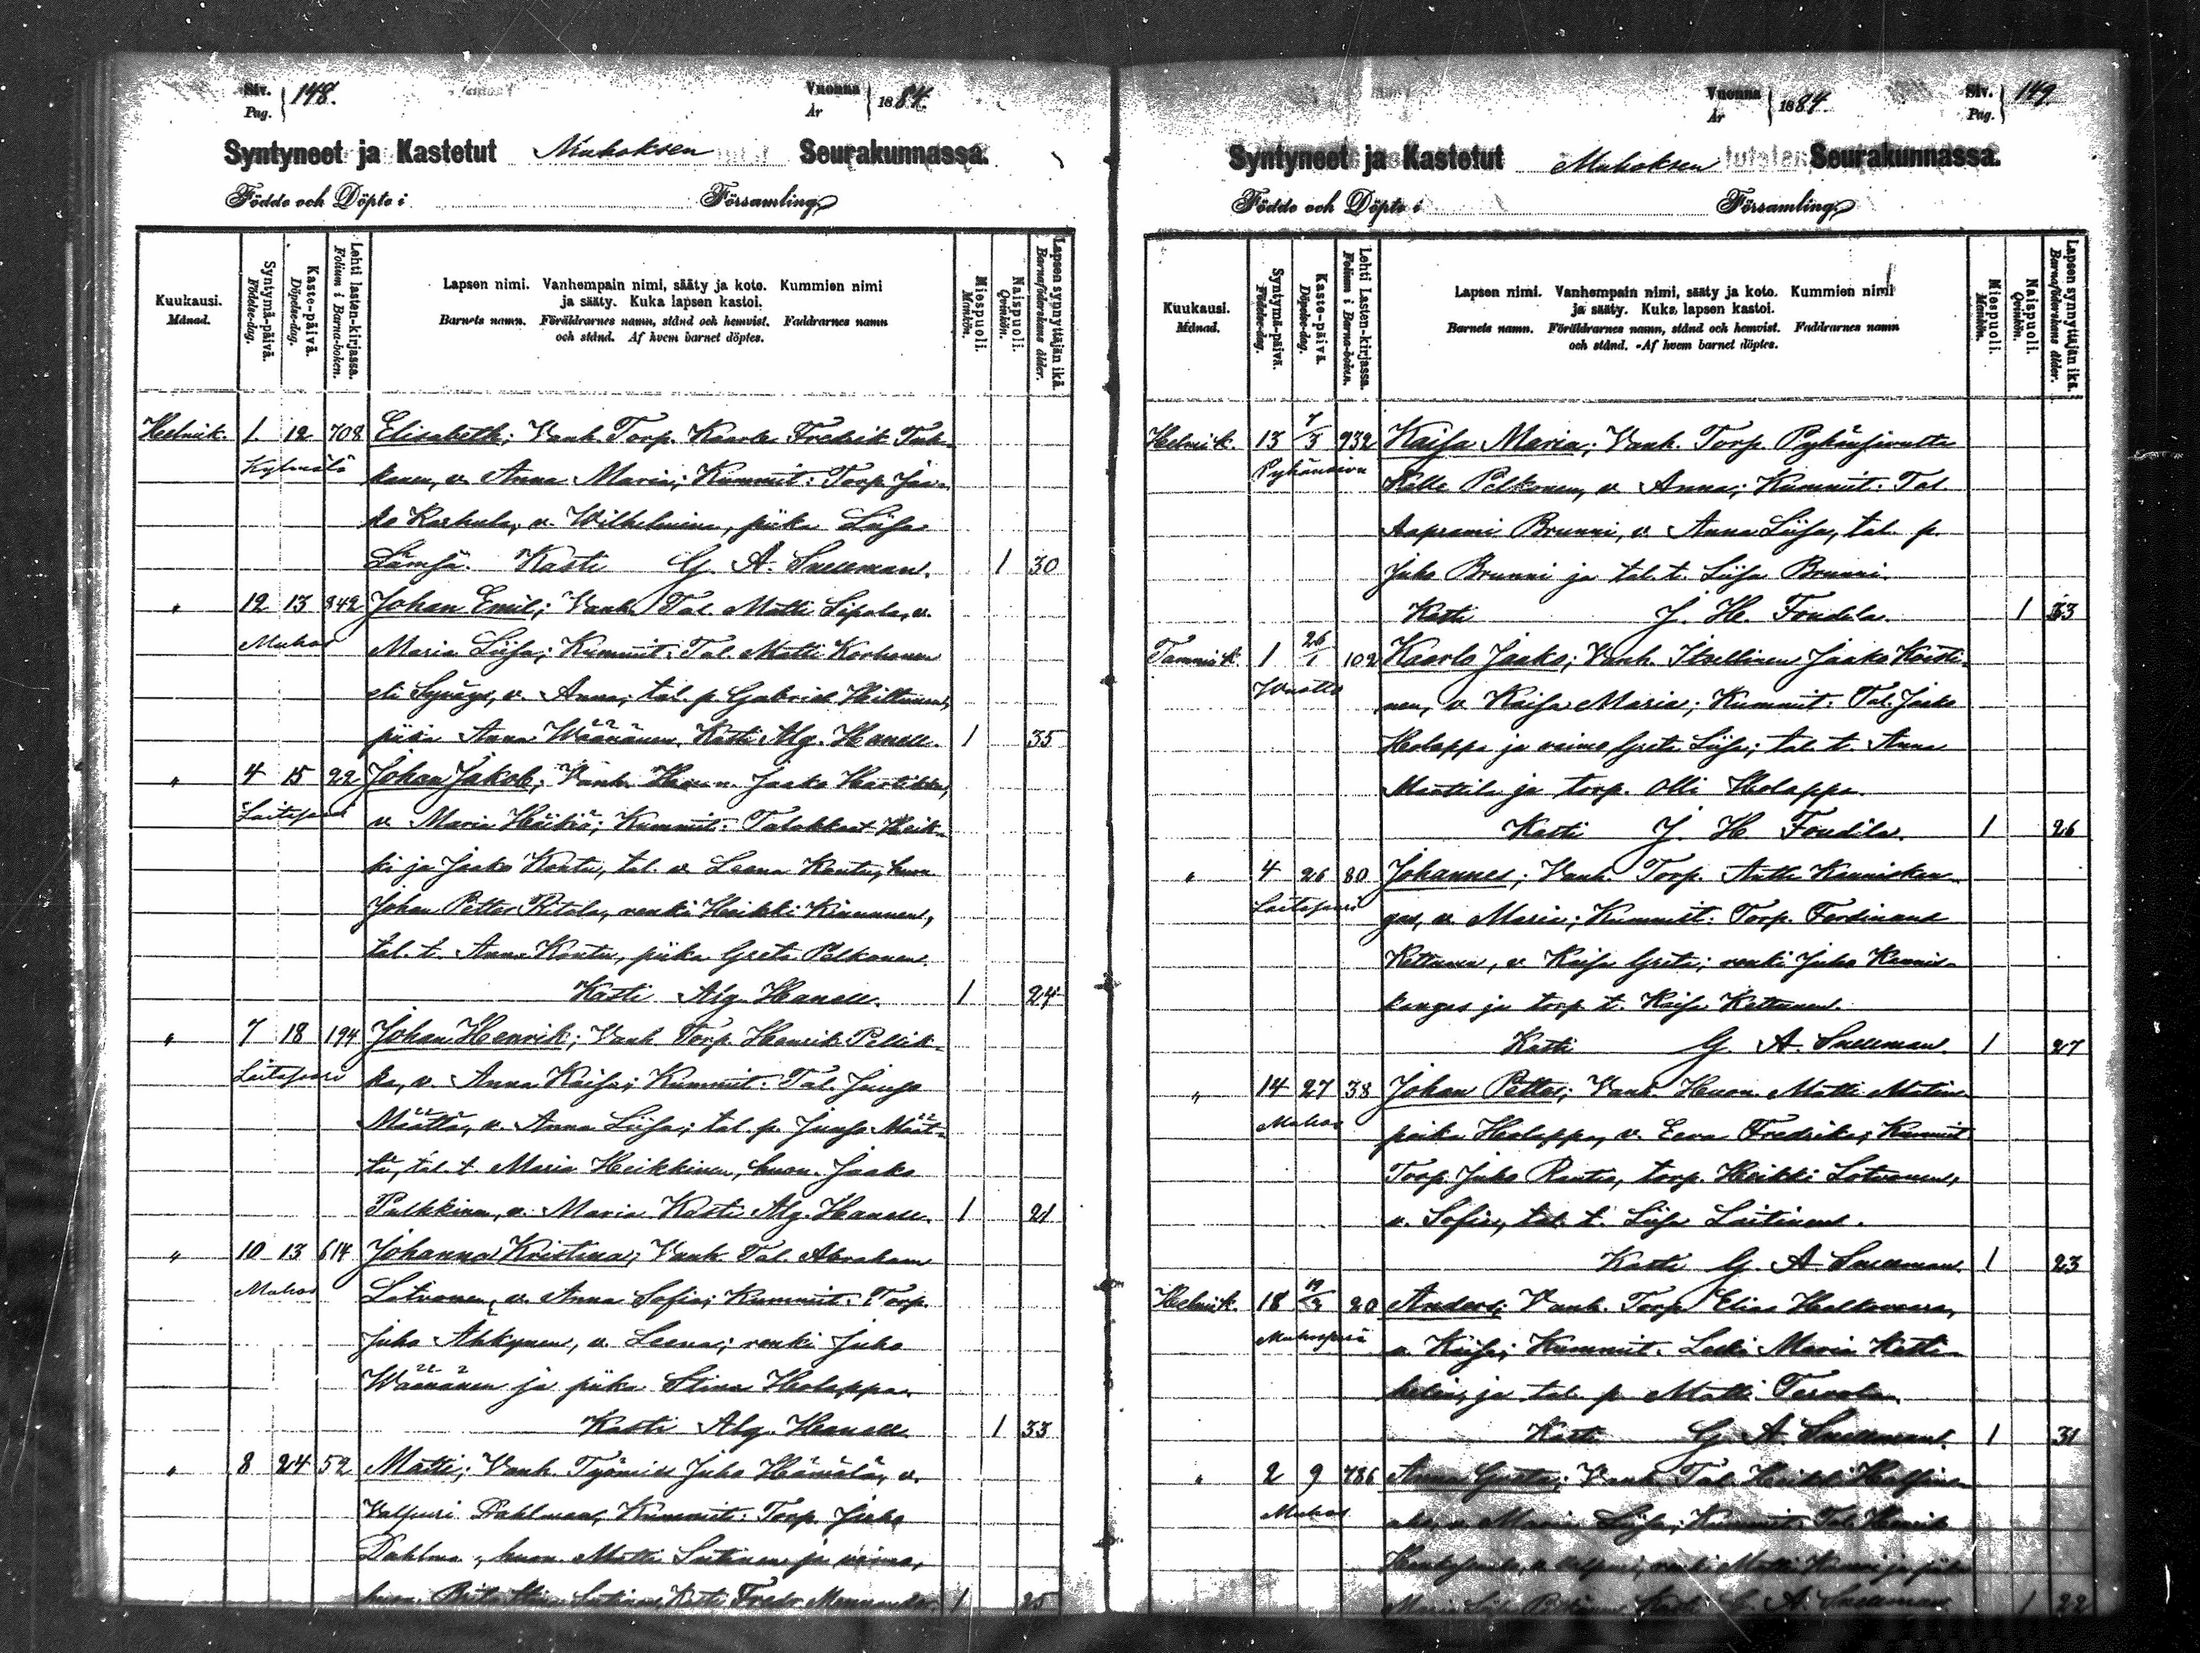 Siv. Pag. 148.
Vuonna År 1884.
Syntyneet ja Kastetut Muhoksen Seurakunnassa.
Födde och Döpte i Församling
Kuukausi. Månad.
Syntymä-päivä. Födelse-dag.
Kaste-päivä. Döpelse-dag.
Lehti lasten-kirjassa. Folium i Barna-boken.
Lapsen nimi. Vanhempain nimi, sääty ja koto. Kummien nimi
ja sääty. Kuka lapsen kastoi.
Barnets namn. Föräldrarnes namn, stånd och hemvist. Faddrarnes namn
och stånd. Af hvem barnet döptes.
Miespuoli. Mankön.
Naispuoli. Qvinkön.
Lapsen synnyttäjän ikä. Barnaföderskans ålder.
Helmik. 1. 12 708 Elisabeth; Vanh. Torp. Kaarle Fredrik
Kylmälä v. Anna Maria; Kummit: Torp. Jaa-
ko Karhula, v. Wilhelmina, piika Liisa
Lämsä. Kasti G. A. Snellman. 1 30
" 12 13 842 Johan Emil; Vanh. Tal. Matti Sipola, v.
Muhos Maria Liisa; Kummit: Tal. Matti Korhonen
eli v. Anna; tal. p. Gabriel Hiltunen,
piika Anna Wäänänen. Kasti Alg. Hanell. 1 35
" 4 15 22 Johan Jakob; Vanh. Jaako
Laitasaari v. Maria Häikiö; Kummit: Talokkaat Heik-
ki ja Jaako Kontu, tal. v. Leena Kontu,
Johan Petter Pitola, renki Heikki Kinnunen,
tal. t. Anna Kontu, piika Greta Pelkonen.
Kasti Alg. Hanell. 1 24
" 7 18 194 Johan Henrik; Vanh. Torp. Henrik Pellik-
Laitasaari ka, v. Anna Kaisa; Kummit: Tal. Juuso
Määttä, v. Anna Liisa; tal. p. Juuso Määt-
tä, tal. t. Maria Heikkinen, huon. Jaako
Pulkkinen, v. Maria. Kasti Alg. Hanell. 1 21
" 10 13 614 Johanna Kristina; Vanh. Tal. Abraham
Muhos Lotvonen, v. Anna Sofia; Kummit: Torp.
Juho Ahkynen, v. Leena; renki Juho
Wäänänen ja piika Stina Holappa.
Kasti Alg. Hanell. 1 33
" 8 24 52 Matti; Vanh. Työmies Juho Hämälä, v.
Valpuri Dahlman, Kummit: Torp. Juho
huon. Matti ja vaimo,
Kasti Fredr. Mennander. 1 25
Siv. Pag. 149.
Vuonna År 1884.
Syntyneet ja Kastetut Muhoksen Seurakunnassa.
Födde och Döpte i Församling
Kuukausi. Månad.
Syntymä-päivä. Födelse-dag.
Kaste-päivä. Döpelse-dag.
Lehti Lasten-kirjassa. Folium i Barna-boken.
Lapsen nimi. Vanhempain nimi, sääty ja koto. Kummien nimi
ja sääty. Kuka lapsen kastoi.
Barnets namn. Föräldrarnes namn, stånd och hemvist. Faddrarnes namn
och stånd. Af hvem barnet döptes.
Miespuoli. Mankön.
Naispuoli. Qvinkön.
Lapsen synnyttäjän ikä. Barnaföderskans ålder.
Helmik. 13 7/3 932 Kaisa Maria; Vanh. Torp.
Pyhänsivu Pelkonen, v. Anna; Kummit: Tal.
Aaprami Brunni, v. Anna Liisa, tal. p.
Juho Brunni ja tal. t. Liisa Brunni.
Kasti J. H. Fondila. 1 33
Tammik. 1 26/1 102 Kaarlo Jaako; Vanh. Itsellinen Jaako
nen, v. Kaisa Maria; Kummit: Tal. Jaako
Holappa ja vaimo Greta Liisa; tal. t. Anna
Mattila ja torp. Olli Holappa.
Kasti J. H. Fondila. 1 26
" 4 26 80 Johannes; Vanh. Torp. Antti
Laitasaari v. Maria; Kummit: Torp. Ferdinand
Kettunen, v. Kaisa Greta; renki Juho
ja torp. t. Kaisa Kettunen.
Kasti G. A. Snellman. 1 27
" 14 27 38 Johan Petter; Vanh. Huon. Matti Matin-
Muhos poika Holappa, v. Eeva Fredrika; Kummit
Torp. Juho torp. Heikki Lotvonen,
v. Sofia, tal. t. Liisa Laitinen.
Kasti G. A. Snellman. 1 23
Helmik. 18 19/2 20 Anders; Vanh. Torp. Elias
Muhosperä v. Kaisa; Kummit: Leski Maria
ja tal. p. Matti Tervola.
Kasti G. A. Snellman. 1 31
" 2 9 786 Anna Greta; Vanh. Tal. Heikki
Muhos v. Maria Liisa; Kummit: Tal. Henrik
renki Matti ja piika
Maria Kasti G. A. Snellman. 1 22